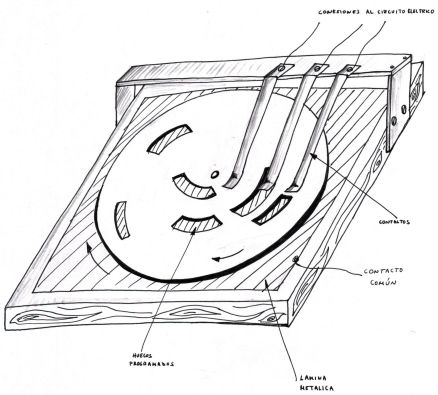 CONEXIONES AL CIRCUITO ELECTRICO
CONTACTOS
CONTACTO
COMÚN
HUECOS
PROGRAMADOS
LAMINA
METALICA